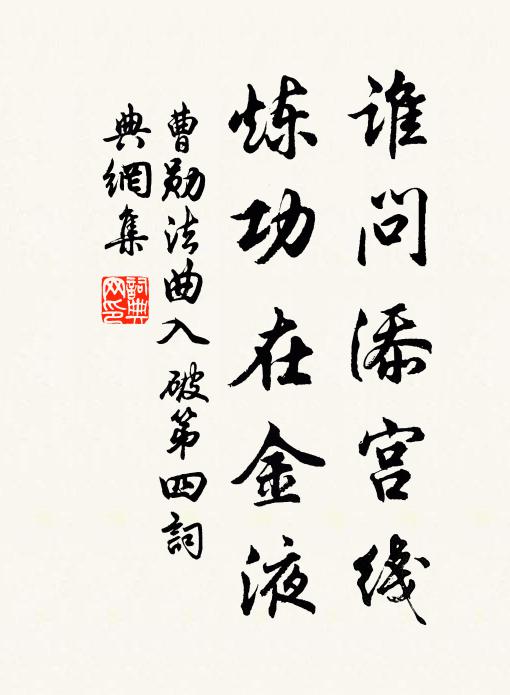 谁问添宫线
炼功在金液
曹勋法曲入破第四詞
典網集
詞典网印